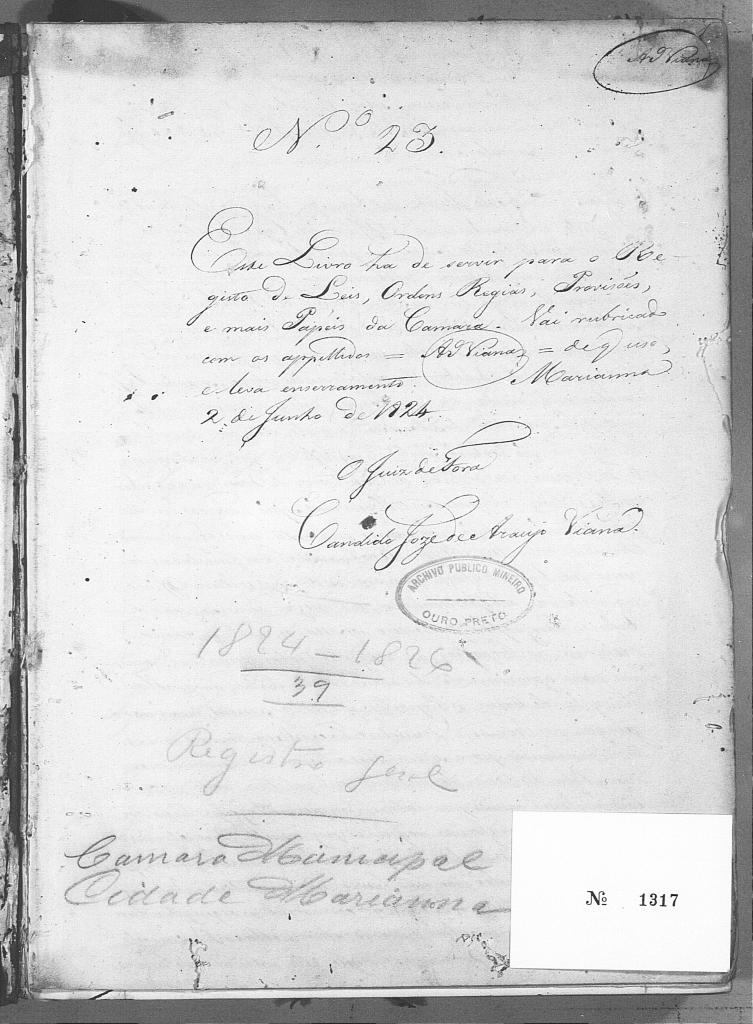 AdViana
N.º 23.
Este Livro ha de servir para o Re-
gisto de Leis, Ordens Regias, Provisões,
e mais Papéis da Camara. Vai rubricado
com os appellidos = AdViana = de q uso,
e leva enserramento. Marianna
2 de Junho de 1824.
O Juiz de Fora
Candido Joze de Araujo Viana.
ARCHIVO PUBLICO MINEIRO
OURO PRETO
1824 - 1826
39
Registro Geral
Camara Municipal
Cidade Marianna
Nº 1317